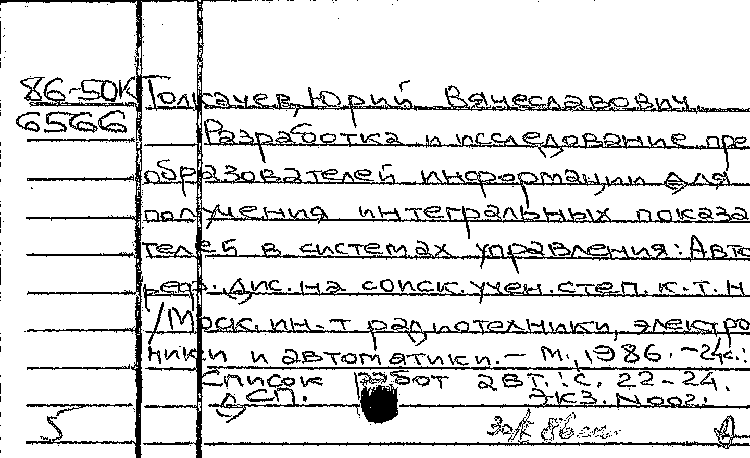 86-50К Толкачев, Юрий Вячеславович.
6566 Разработка и исследование пре
образователей информации для
получения интегральных показа
телей в системах управления: Авто
реф. дис. на соиск. учен. степ. к.т.н
/Моск. ин-т радиотехники, электро
ники и автоматики. – М., 1986. – 24с.:
Список работ авт.: с. 22-24.
ДСП. Экз. N002.